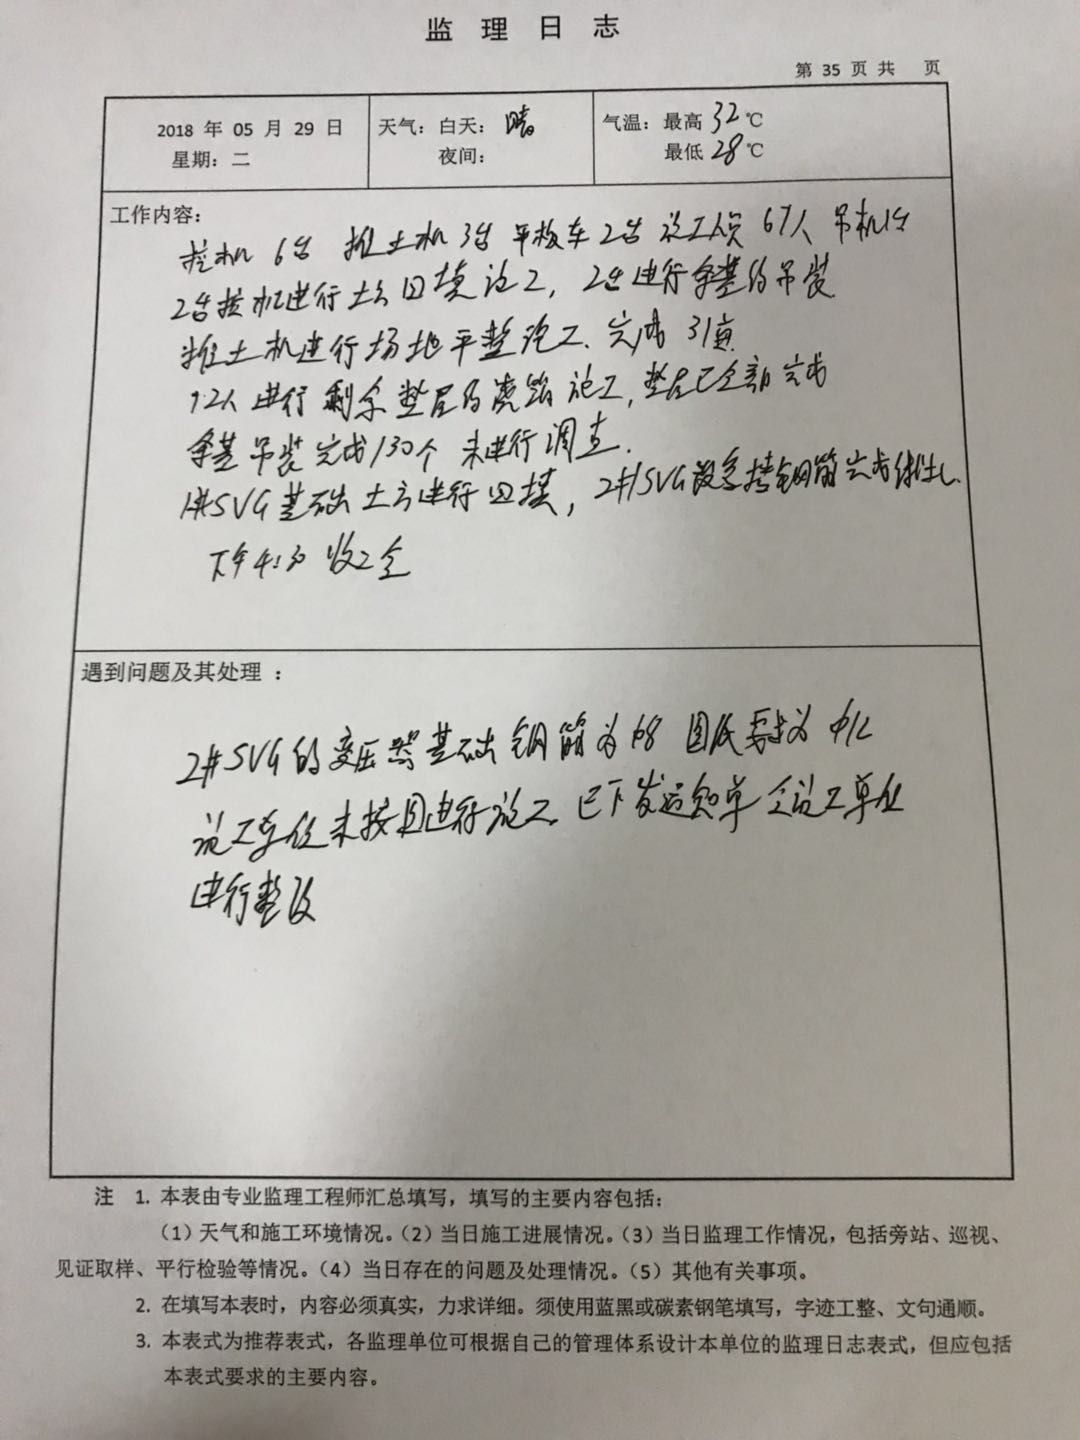 监 理 日 志
第 35 页 共 页
2018 年 05 月 29 日
星期：二
天气：白天：晴
夜间：
气温：最高 32 ℃
最低 28 ℃
工作内容：
挖机 6台 推土机 3台 平板车 2台 施工人员 67人 吊机
2台挖机进行土方回填施工，2台进行 基的吊装
推土机进行场地平整施工、完成 31亩
12人 进行剩余垫层的浇筑施工，垫层已全部完成
基吊装完成130个 未进行调直.
1#SVG基础土方进行回填，2#SVG设备 钢筋完成
下午4:30 收工
遇到问题及其处理 ：
2#SVG的变压器基础钢筋为φ8 图纸要求为 φ12
施工单位未按图进行施工 已下发通知单 令施工单位
进行整改
注 1. 本表由专业监理工程师汇总填写，填写的主要内容包括：
（1）天气和施工环境情况。（2）当日施工进展情况。（3）当日监理工作情况，包括旁站、巡视、
见证取样、平行检验等情况。（4）当日存在的问题及处理情况。（5）其他有关事项。
2. 在填写本表时，内容必须真实，力求详细。须使用蓝黑或碳素钢笔填写，字迹工整、文句通顺。
3. 本表式为推荐表式，各监理单位可根据自己的管理体系设计本单位的监理日志表式，但应包括
本表式要求的主要内容。